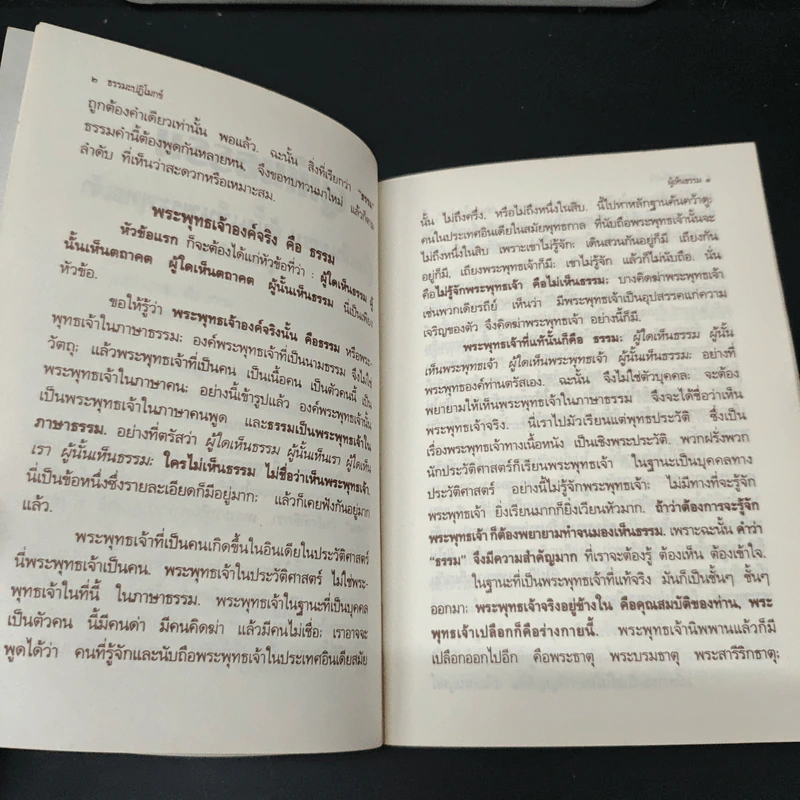 ๒ ธรรมะปฏิโมกข์
ถูกต้องคำเดียวเท่านั้น พอแล้ว. ฉะนั้น สิ่งที่เรียกว่า "ธรรม"
ธรรมคำนี้ต้องพูดกันหลายหน, จึงขอทบทวนมาใหม่ แล้วก็ตาม
ลำดับ ที่เห็นว่าสะดวกหรือเหมาะสม.
พระพุทธเจ้าองค์จริง คือ ธรรม
หัวข้อแรก ก็จะต้องได้แก่หัวข้อที่ว่า : ผู้ใดเห็นธรรม ผู้
นั้นเห็นตถาคต ผู้ใดเห็นตถาคต ผู้นั้นเห็นธรรม นี่เป็นเพียง
หัวข้อ.
ขอให้รู้ว่า พระพุทธเจ้าองค์จริงนั้น คือธรรม หรือพระ-
พุทธเจ้าในภาษาธรรม; องค์พระพุทธเจ้าที่เป็นนามธรรม จึงไม่ใช่
วัตถุ; แล้วพระพุทธเจ้าที่เป็นคน เป็นเนื้อคน เป็นตัวคนนี้ เป็น
พระพุทธเจ้าในภาษาคน; อย่างนี้เข้ารูปแล้ว องค์พระพุทธเจ้านั้น
เป็นพระพุทธเจ้าในภาษาคนพูด และธรรมเป็นพระพุทธเจ้าใน
ภาษาธรรม. อย่างที่ตรัสว่า ผู้ใดเห็นธรรม ผู้นั้นเห็นเรา ผู้ใดเห็น
เรา ผู้นั้นเห็นธรรม; ใครไม่เห็นธรรม ไม่ชื่อว่าเห็นพระพุทธเจ้า.
นี่เป็นข้อหนึ่งซึ่งรายละเอียดก็มีอยู่มาก; แล้วก็เคยฟังกันอยู่มาก
แล้ว.
พระพุทธเจ้าที่เป็นคนเกิดขึ้นในอินเดียในประวัติศาสตร์
นี่พระพุทธเจ้าเป็นคน. พระพุทธเจ้าในประวัติศาสตร์ ไม่ใช่พระ-
พุทธเจ้าในที่นี้ ในภาษาธรรม. พระพุทธเจ้าในฐานะที่เป็นบุคคล
เป็นตัวคน นี้มีคนด่า มีคนคิดฆ่า แล้วมีคนไม่เชื่อ; เราอาจจะ
พูดได้ว่า คนที่รู้จักและนับถือพระพุทธเจ้าในประเทศอินเดียสมัย
ผู้เห็นธรรม ๓
นั้น ไม่ถึงครึ่ง, หรือไม่ถึงหนึ่งในสิบ. นี้ไปหาหลักฐานค้นคว้าดู;
คนในประเทศอินเดียในสมัยพุทธกาล ที่นับถือพระพุทธเจ้านั้นจะ
ไม่ถึงหนึ่งในสิบ เพราะเขาไม่รู้จัก; เดินสวนกันอยู่ก็มี เถียงกัน
อยู่ก็มี, เถียงพระพุทธเจ้าก็มี; เขาไม่รู้จัก แล้วก็ไม่นับถือ. นั่น
คือไม่รู้จักพระพุทธเจ้า คือไม่เห็นธรรม; บางคิดฆ่าพระพุทธเจ้า
เช่นพวกเดียรถีย์ เห็นว่า มีพระพุทธเจ้าเป็นอุปสรรคแก่ความ
เจริญของตัว จึงคิดฆ่าพระพุทธเจ้า อย่างนี้ก็มี.
พระพุทธเจ้าที่แท้นั้นก็คือ ธรรม; ผู้ใดเห็นธรรม ผู้นั้น
เห็นพระพุทธเจ้า ผู้ใดเห็นพระพุทธเจ้า ผู้นั้นเห็นธรรม; อย่างที่
พระพุทธองค์ท่านตรัสเอง. ฉะนั้น จึงไม่ใช่ตัวบุคคล; จะต้อง
พยายามให้เห็นพระพุทธเจ้าในภาษาธรรม จึงจะได้ชื่อว่าเห็น
พระพุทธเจ้าจริง. นี่เราไปมัวเรียนแต่พุทธประวัติ ซึ่งเป็น
เรื่องพระพุทธเจ้าทางเนื้อหนัง เป็นเชิงพระประวัติ. พวกฝรั่งพวก
นักประวัติศาสตร์ก็เรียนพระพุทธเจ้า ในฐานะเป็นบุคคลทาง
ประวัติศาสตร์ อย่างนี้ไม่รู้จักพระพุทธเจ้า; ไม่มีทางที่จะรู้จัก
พระพุทธเจ้า ยิ่งเรียนมากก็ยิ่งเวียนหัวมาก. ถ้าว่าต้องการจะรู้จัก
พระพุทธเจ้า ก็ต้องพยายามทำจนมองเห็นธรรม. เพราะฉะนั้น คำว่า
"ธรรม" จึงมีความสำคัญมาก ที่เราจะต้องรู้ ต้องเห็น ต้องเข้าใจ.
ในฐานะที่เป็นพระพุทธเจ้าที่แท้จริง มันก็เป็นชั้นๆ ชั้นๆ
ออกมา; พระพุทธเจ้าจริงอยู่ข้างใน คือคุณสมบัติของท่าน, พระ
พุทธเจ้าเปลือกก็คือร่างกายนี้. พระพุทธเจ้านิพพานแล้วก็มี
เปลือกออกไปอีก คือพระธาตุ พระบรมธาตุ พระสารีริกธาตุ;